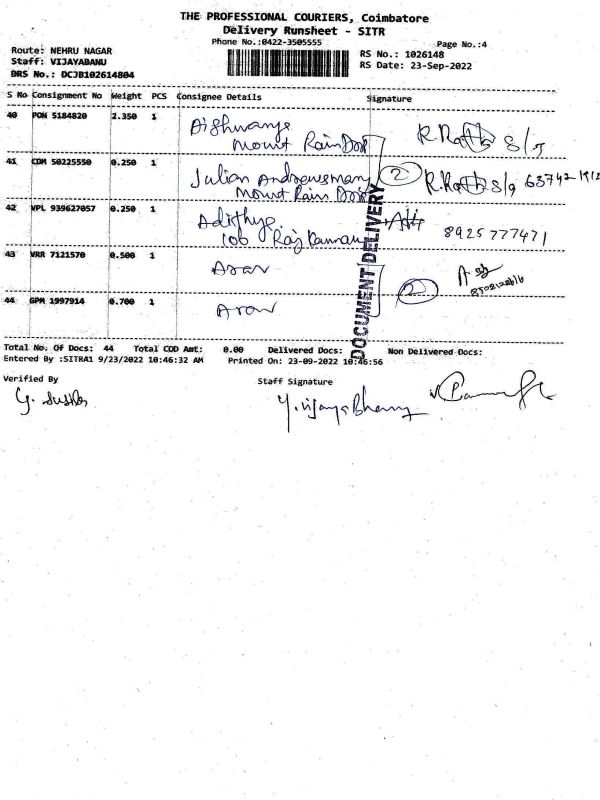 THE PROFESSIONAL COURIERS, Coimbatore
Delivery Runsheet - SITR
Phone No.:0422-3505555
Page No.:4
Route: NEHRU NAGAR
RS No.: 1026148
Staff: VIJAYABANU
RS Date: 23-Sep-2022
DRS No.: DCJB102614804
S No Consignment No Weight PCS Consignee Details Signature
40 PON 5184820 2.350 1 Aishwarya
Mount Rain
41 CDM 50225550 0.250 1 Julian
Mount Rain
2
42 VPL 939627057 0.250 1 Adithya
106 Raj
8925777471
43 VRR 7121570 0.500 1
44 GPM 1997914 0.700 1
2
DOCUMENT DELIVERY
Total No. Of Docs: 44 Total COD Amt: 0.00 Delivered Docs: Non Delivered Docs:
Entered By :SITRA1 9/23/2022 10:46:32 AM Printed On: 23-09-2022 10:46:56
Verified By
Staff Signature